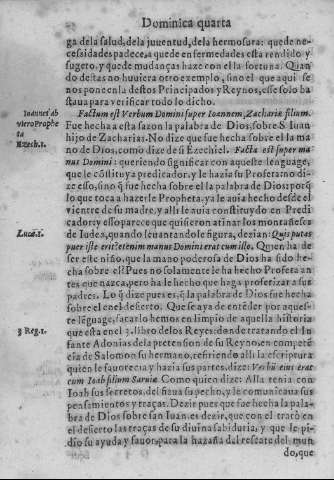 Dominica quarta
ga de la salud, de la juventud, de la hermosura: quede ne-
cessidades padece, a quede enfermedades esta rendido y
sugeto, y quede mudanças haze con el la fortuna. Quan
do destas no huviera otro exemplo, sino el que aqui se
nos pone en la destos Principados y Reynos, esse solo ha
stava para verificar todo lo dicho.
Ioannes ab
utero Prophe
ta
Ezech.1.
Factum est Verbum Domini super Ioannem, Zachariæ filium.
Fue hecha esta sazon la palabra de Dios, sobre S. Iuan
hijo de Zacharias. No dize que fue hecha sobre el la ma
no de Dios, como dize de si Ezechiel. Facta est super ma
nus Domini: queriendo significar con aqueste lenguage,
que le cōstituya predicador, y le hazia su Profeta no di-
ze esso, sino q̃ fue hecha sobre el la palabra de Dios: porq̃
lo que toca a hazerle Propheta, ya le avia hecho desde el
vientre de su madre, y alli le avia constituydo en Predi
cador: y esso parece que quisieron atinar los montañeses
Luca.1.
de Iudea, quando levantando le figura, dezian: Quis putas
puer iste erit? etenim manus Domini erat cum illo. Quien ha de
ser este niño, que la mano poderosa de Dios ha sido he-
cha sobre el? Pues no solamente le ha hecho Profeta an-
tes que nazca, pero ha le hecho que haga profetizar a sus
padres. Lo q̃ dize pues es, q̃ la palabra de Dios fue hecha
sobre el en el desierto. Que se aya de entēder por aques-
te lēguage, sacarlo hemos en limpio de aquella historia
3 Reg.1.
que esta en el 3. libro de los Reyes: donde tratando el In
fante Adonias de la pretension de su Reyno, en compete
cia de Salomon su hermano, refiriendo alli la escriptura
quien le favorecia y hazia sus partes, dize: Verbū eius erat
cum Ioab filium Sarviæ. Como quien dize: Alla tenia con
Ioab sus secretos, del fiava su pecho, y le comunicava sus
pensamientos y traças. Dezir pues que fue hecha la pala-
bra de Dios sobre san Iuan, es dezir, que con el trato en
el desierto las traças de su divina sabiduria, y que le pi-
dio su ayuda y favor, para la hazaña del rescate del mun
do, que